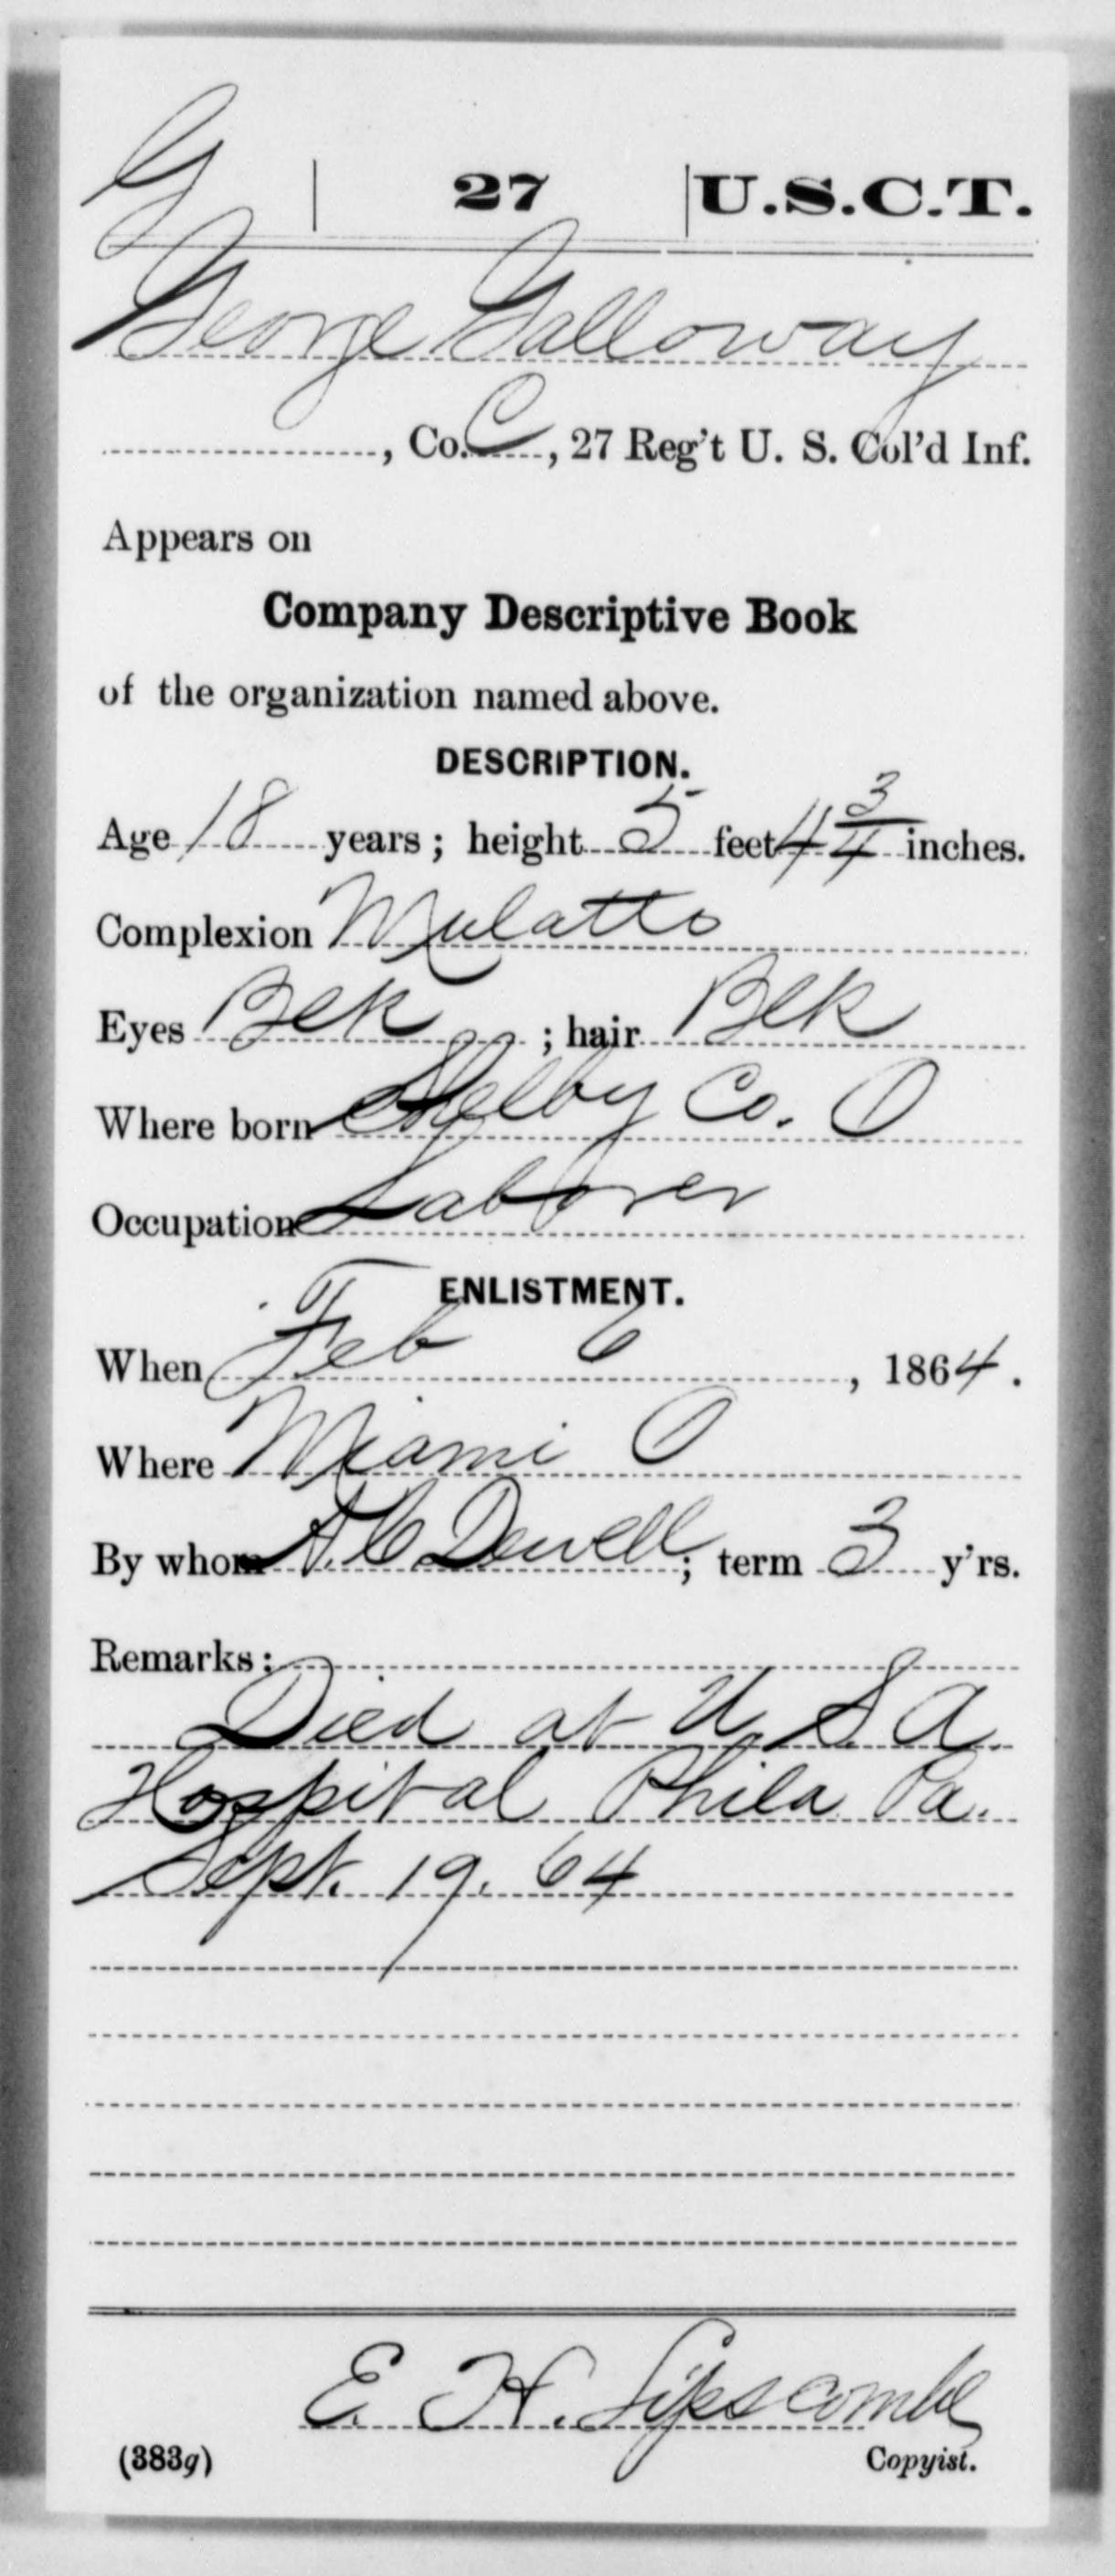 G | 27 | U.S.C.T.
George Galloway
, Co. C, 27 Reg't U. S. Col'd Inf.
Appears on
Company Descriptive Book
of the organization named above.
DESCRIPTION.
Age 18 years; height 5 feet 4 3/4 inches.
Complexion Mulatto
Eyes Blk; hair Blk
Where born Shelby Co. O
Occupation Laborer
ENLISTMENT.
When Feb 6, 1864.
Where Miami O
By whom A. C Dewell; term 3 y'rs.
Remarks:
Died at U. S. A.
Hospital Phila Pa.
Sept. 19. 64
E. H. Lipscombe
(383g) Copyist.